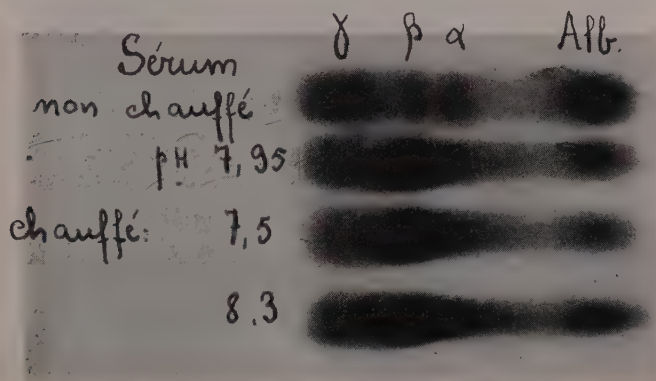 γ β α Alb.
Sérum
non chauffé
pH 7,95
chauffé: 7,5
8.3